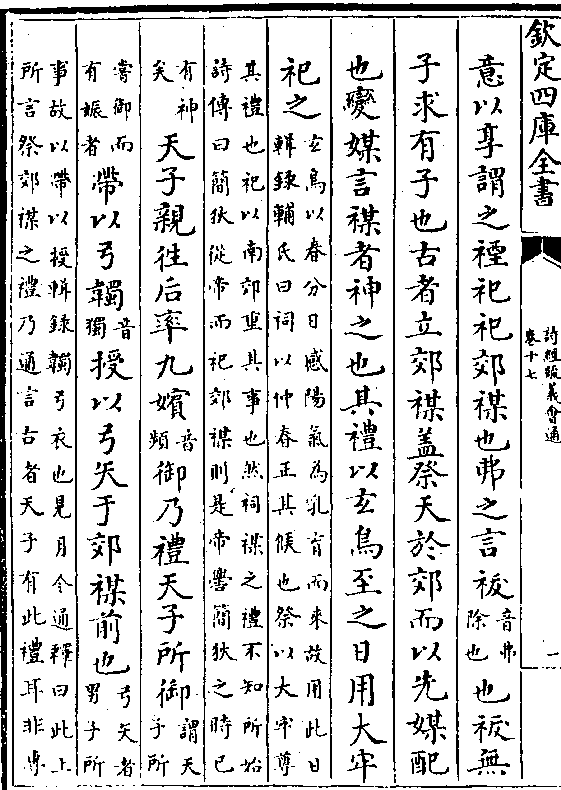 欽定四庫全書
詩經疏義會通
卷十七
一
意以享謂之禋祀祀郊禖也弗之言祓音弗除也也祓無
子求有子也古者立郊禖蓋祭天於郊而以先媒配
也變媒言禖者神之也其禮以玄鳥至之日用大牢
祀之玄鳥以春分日感陽氣為乳育而來故用此日輯錄輔氏曰祠以仲春正其候也祭以大牢尊
其禮也祀以南郊重其事也然祠禖之禮不知所始詩傳曰簡狄從帝而祀郊禖則是帝嚳簡狄之時已
有神矣天子親往后率九嬪音頻御乃禮天子所御謂天子所
嘗御而有娠者帶以弓韣音獨授以弓矢于郊禖前也弓矢者男子所
事故以帶以授輯錄韣弓衣也見月令通釋曰此上所言祭郊禖之禮乃通言古者天子有此禮耳非專